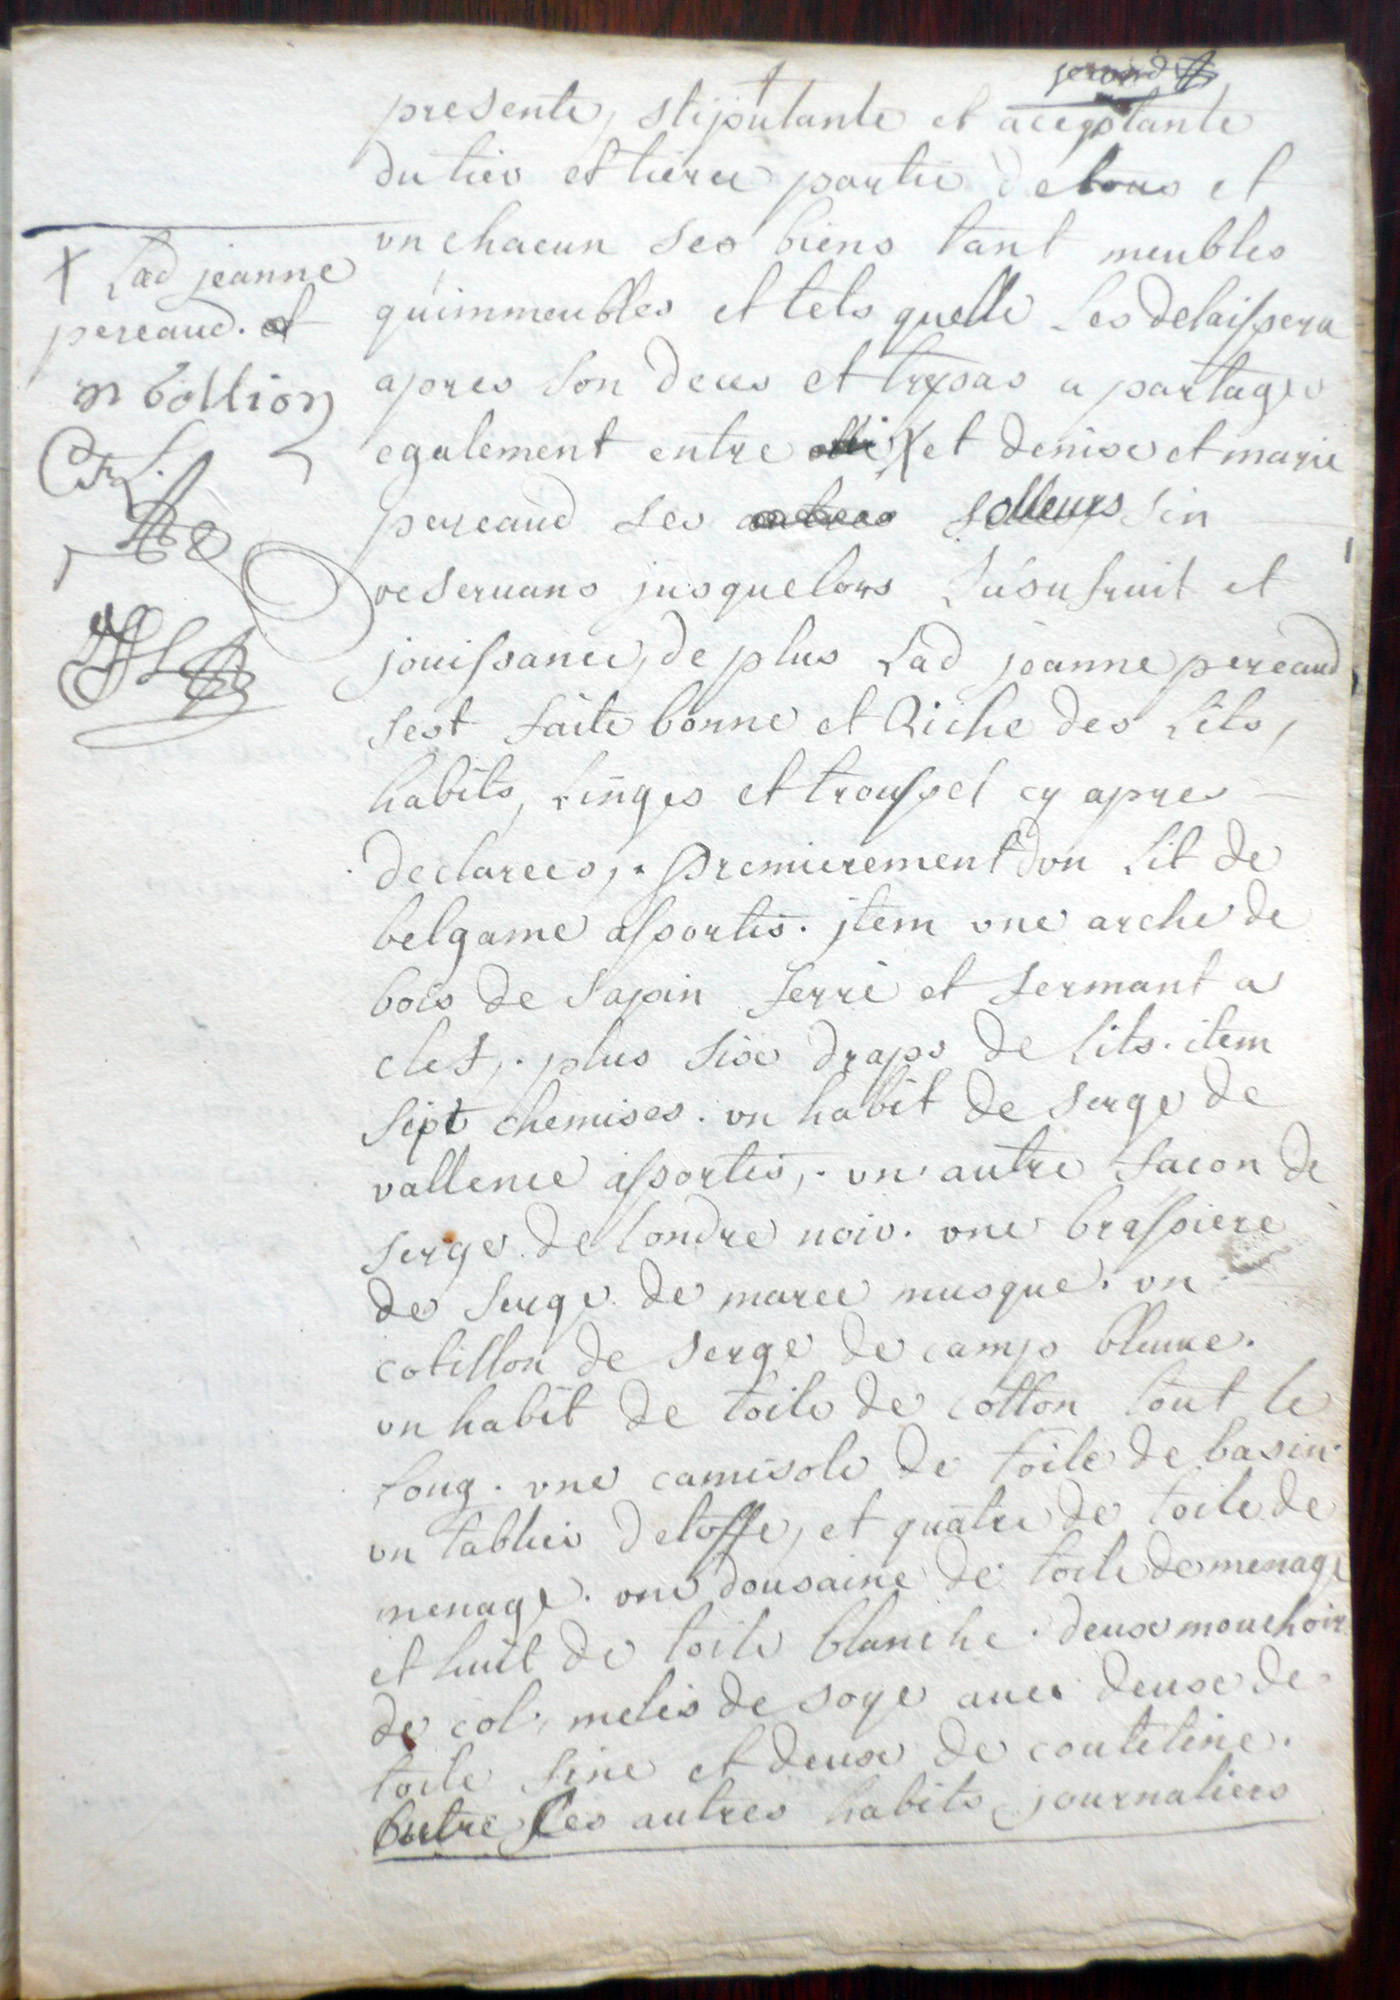 presente, stipulante et aceptante
du tier et tierce partie de tous et
un chacun ses biens tant meubles
qu'immeubles et tels quelle les delaissera
apres son deces et trepas a partager
egalement entre elle X et denise et marie
pereaud ses autres soeurs sin
reservans jusquelors l'usufruit et
jouissance, de plus lad jeanne pereaud
sest faite bonne et Riche des lits,
habits, linges et troussel cy apres
declarees, premierement dun lit de
belgame assortis. jtem une arche de
bois de sapin ferré et fermant a
clef, plus sise draps de lits. item
sept chemises. un habit de serge de
vallence assortis, un autre facon de
serge de londre noir. une brassiere
de serge de maree musque. un
cotillon de serge de camp bleuve.
un habit de toile de cotton tout le
long. une camisole de toile de basin
un tablier d'etoffe, et quatre de toile de
menage. une dousaine de toile de menage
et huit de toile blanche. deux mouchoirs
de col, meles de soye avec deux de
toile fine et deux de couteline.
outre ses autres habits journaliers
X Lad jeanne
pereaud. et
m bollion